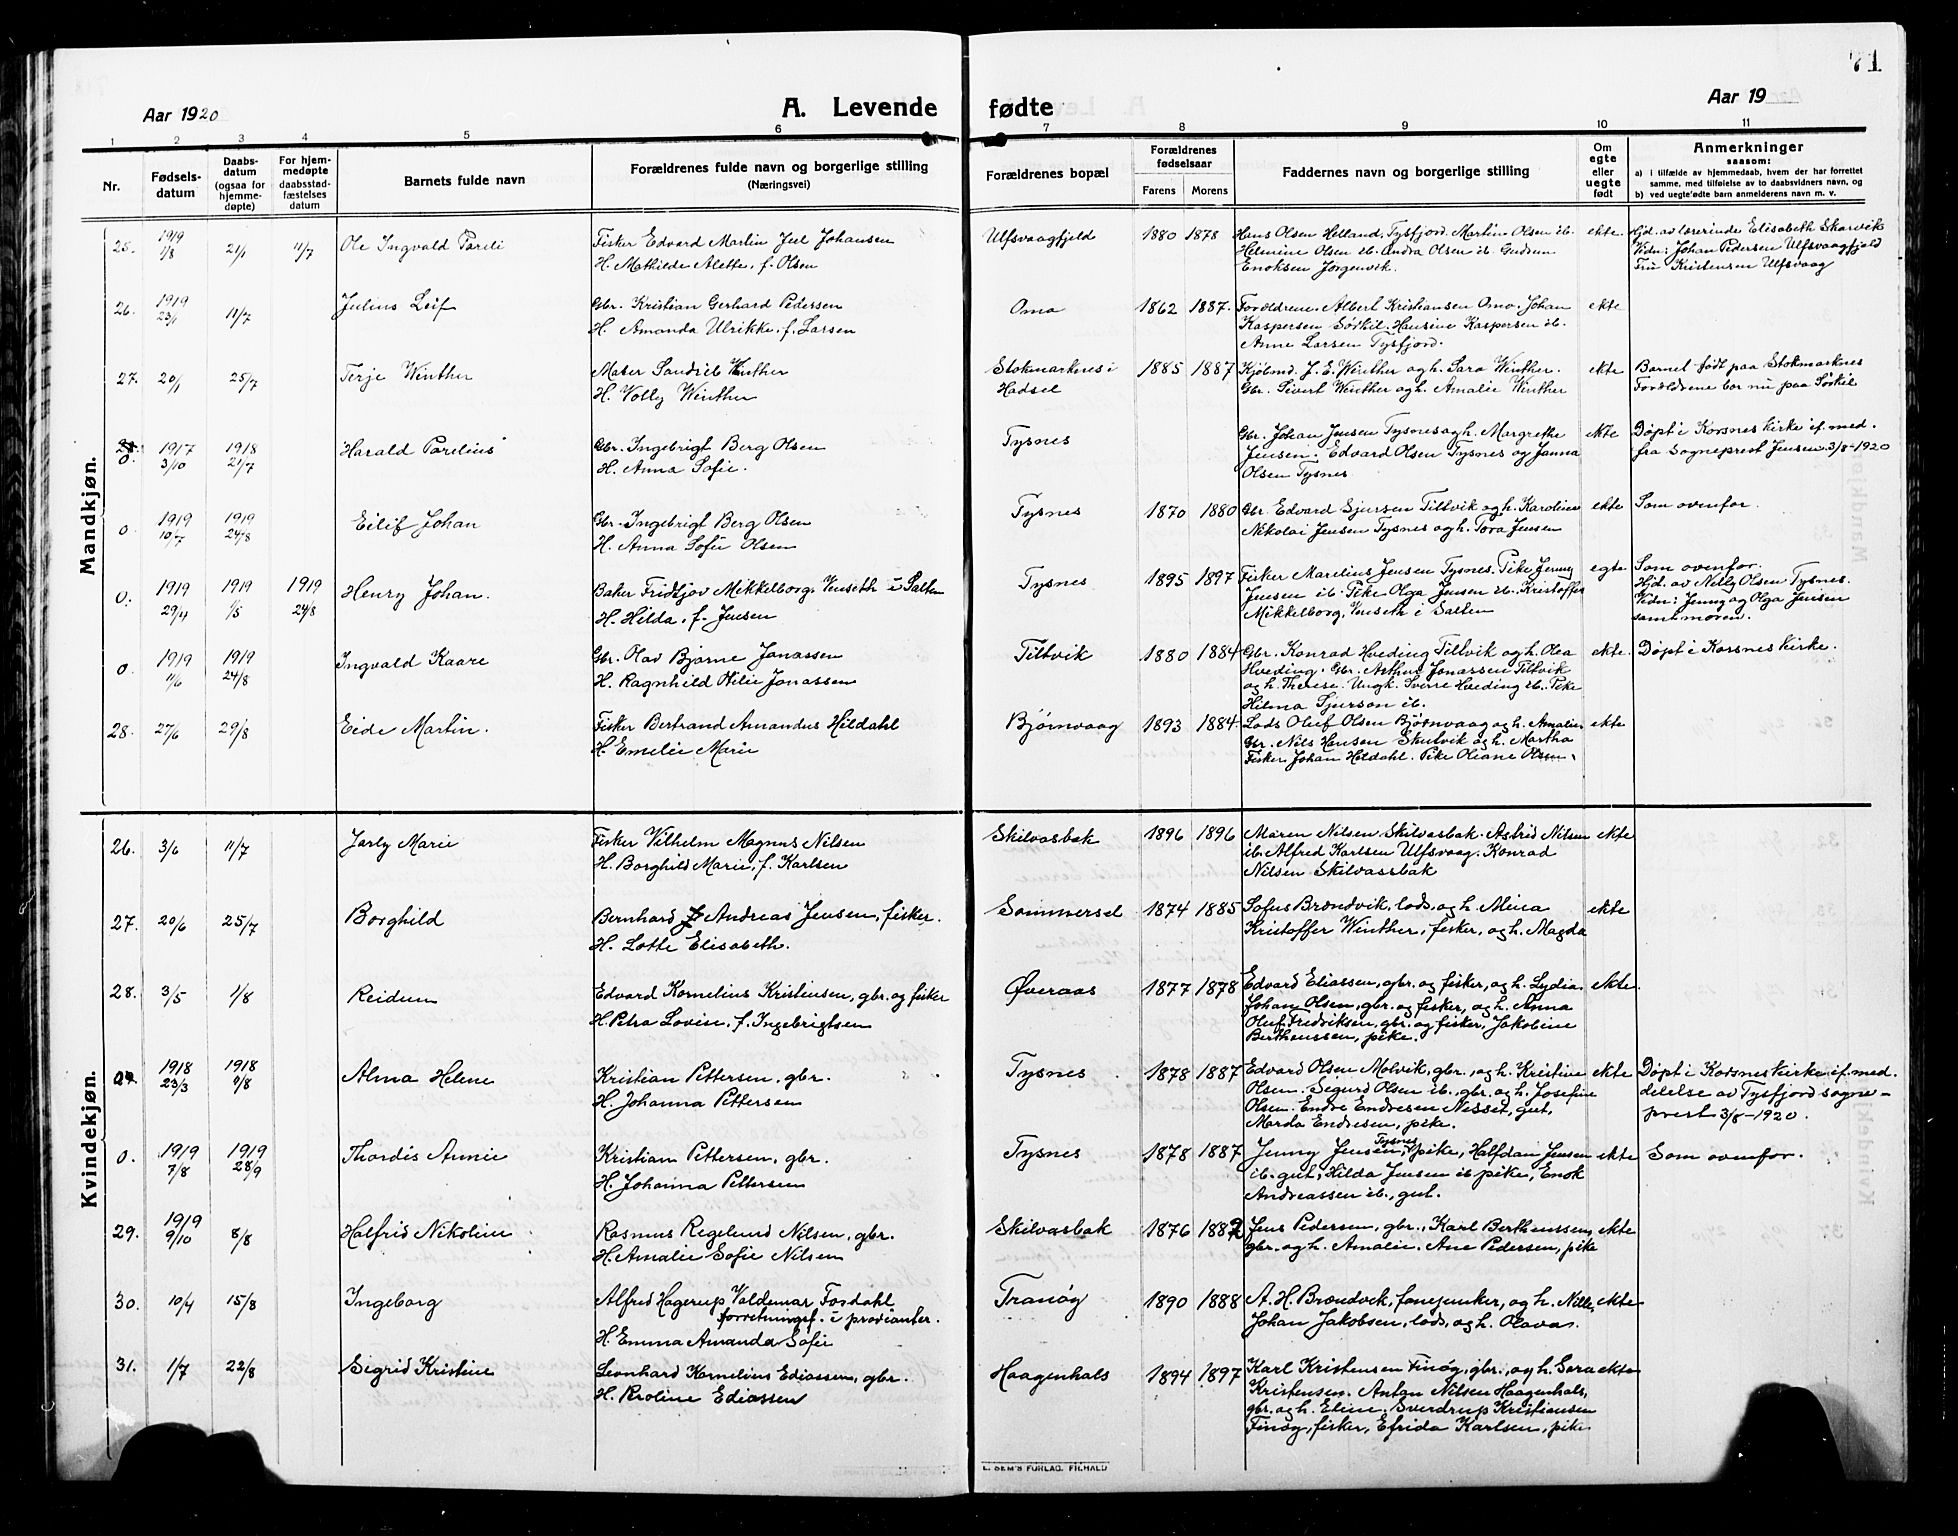 71
Aar 1920
A. Levende fødte
Aar 19
1 2 3 4 5 6 7 8 9 10 11
Nr.
Fødsels-datum
Daabs-datum (ogsaa for hjemme-døpte)
For hjem-medøpte daabsstad-fæstelses datum
Barnets fulde navn
Forældrenes fulde navn og borgerlige stilling
(Næringsvei)
Forældrenes bopæl
Forældrenes fødselsaar
Farens
Morens
Faddernes navn og borgerlige stilling
Om egte eller uegte født
Anmerkninger
saasom:
a) i tilfælde av hjemmedaab, hvem der har forrettet
samme, med tilføielse av to daabsvidners navn, og
b) ved uegte fødte barn anmelderens navn m. v.
Mandkjøn.
25. 1919 1/8 21/1 11/7 Ole Ingvald Pareli
Fisker Edvard Martin Juel Johansen
H. Mathilde Alette, f. Olsen
Ulfsvaagfjeld 1880 1878
Hans Olsen Helland, Tysfjord. Martin Olsen ib.
Helmine Olsen ib. Andra Olsen ib. Gudrun
Enoksen Jørgenvik.
ekte.
Hjd. av lærerinde Elisabeth Skarvik
Vidn: Johan Pedersen Ulfsvaagfjeld
Fru Kristensen Ulfsvaag
26. 1919 23/1 11/7 Julius Leif
Gbr. Kristian Gerhard Pedersen
H. Amanda Ulrikke, f. Larsen
Omo 1862 1887.
Forældrene. Albert Kristiansen Omo. Johan
Kaspersen Sørkil. Hansine Kaspersen ib.
Anne Larsen Tysfjord.
ekte
27. 20/1 25/7 Terje Winther
Maler Sandul Winther
H. Volly Winther
Stokmarknes i
Hadsel
1885 1887
Kjøbmd. J. E. Winther og h. Sara Winther.
Gbr. Sivert Winther og h. Amalie Winther
ekte
Barnet født paa Stokmarknes
Forældrene bor nu paa Sørkil
28. 0. 1917 3/10 1918 21/7 Harald Parelius
Gbr. Ingebrigt Berg Olsen
H. Anna Sofie.
Tysnes
Gbr. Johan Jensen Tysnes og h. Margrethe
Jensen. Edvard Olsen Tysnes og Janna
Olsen Tysnes
ekte
Døpt i Korsnes kirke if. med.
fra sogneprest Jensen 3/8-1920
0. 1919 10/7 1919 24/8 Eilif Johan
Gbr. Ingebrigt Berg Olsen
H. Anna Sofie Olsen
Tysnes 1870 1880
Gbr. Edvard Sjursen Tiltvik og h. Karoline
Nikolai Jensen Tysnes og h. Tora Jensen
ekte
Som ovenfor.
0. 1919 29/4 1919 1/5 1919 24/8 Henry Johan.
Baker Fridtjov Mikkelborg, Venseth i Salten
H. Hilda, f. Jensen
Tysnes 1895 1897
Fisker Marelius Jensen Tysnes. Pike Jenny
Jensen ib. Pike Olga Jensen ib. Kristoffer
Mikkelborg, Venseth i Salten
egte
Som ovenfor.
Hjd. av Nelly Olsen Tysnes.
Vidn: Jenny og Olga Jensen
samt moren.
0. 1919 11/6 1919 24/8 Ingvald Kaare
Gbr. Olav Bjarne Jonassen
H. Ragnhild Otilie Jonassen
Tiltvik 1880 1884
Gbr. Konrad Hveding Tiltvik og h. Olea
Hveding. Gbr. Arthur Jonassen Tiltvik
og h. Therese. Ungk. Sverre Hveding ib. Pike
Hilma Sjursen ib.
ekte.
Døpt i Korsnes kirke.
28. 27/6 29/8 Eide Martin.
Fisker Bertrand Amandus Hildahl
H. Emelie Marie
Bjørnvaag 1893 1884.
Lods Oluf Olsen Bjørnvaag og h. Amalie.
Gbr. Nils Hansen Skutvik og h. Martha
Fisker Johan Hildahl. Pike Oleane Olsen.
ekte
Kvindekjøn.
26. 3/6 11/7 Jarly Marie
Fisker Vilhelm Magnus Nilsen
H. Borghild Marie, f. Karlsen
Skilvasbak 1896 1896
Maren Nilsen Skilvasbak. Astrid Nilsen
ib. Alfred Karlsen Ulfsvaag. Konrad
Nilsen Skilvassbak
ekte
27. 20/6 25/7 Borghild
Bernhard Andreas Jensen, fisker.
H. Lotte Elisabeth.
Sommersel 1874 1885
Sofus Brændvik, lods, og h. Meiea
Kristoffer Winther, fisker, og h. Magda
ekte
28. 3/5 1/8 Reidun
Edvard Kornelius Kristensen, gbr. og fisker
H. Petra Lovise, f. Ingebrigtsen
Øveraas 1877 1878
Edvard Eliassen, gbr. og fisker, og h. Lydia
Johan Olsen, gbr. og fisker, og h. Anna
Oluf Fredriksen, gbr. og fisker, Jakobine
Berthenssen, pike.
ekte.
0. 1918 23/3 1918 1/8 Alma Helene
Kristian Pettersen, gbr.
H. Johanna Pettersen
Tysnes 1878 1887
Edvard Olsen Molvik, gbr., og h. Kristine
Olsen. Sigurd Olsen ib. gbr. og h. Josefine
Olsen. Endre Endresen Nesset, gut,
Marda Endresen, pike.
ekte
Døpt i Korsnes kirke if. med-
delelse av Tysfjord sogne-
prest 3/8-1920.
0. 1919 7/8 1919 28/9 Thordis Annie
Kristian Pettersen, gbr.
H. Johanna Pettersen
Tysnes 1878 1887
Jenny Jensen, Tysnes, pike, Halfdan Jensen
ib. gut, Hilda Jensen ib. pike, Enok
Andreassen ib., gut.
ekte
Som ovenfor.
29. 1919 9/10 8/8 Halfrid Nikoline
Rasmus Regelund Nilsen, gbr.
H. Amalie Sofie Nilsen
Skilvasbak 1876 1882
Jens Pedersen, gbr., Karl Berthenssen,
gbr. og h. Amalie. Ane Pedersen, pike
ekte
30. 10/4 15/8 Ingeborg
Alfred Hagerup Valdemar Fosdahl
forretningsf. i proviantør.
H. Emma Amanda Sofie
Tranøy 1890 1888
A. H. Brændvik, fanejunker, og h. Nille,
Johan Jakobsen, lods, og h. Olava.
ekte
31. 1/7 22/8 Sigrid Kristine
Leonhard Kornelius Ediassen, gbr.
H. Proline Ediassen
Haagenhals 1894 1897
Karl Kristensen Finøy, gbr., og h. Sera
Kristensen. Anton Nilsen Haagenhals,
gbr. og h. Eline. Sverdrup Kristiansen
Finøy, fisker, Efrida Karlsen, pike
ekte
E. SEM'S FORLAG, FR.HALD